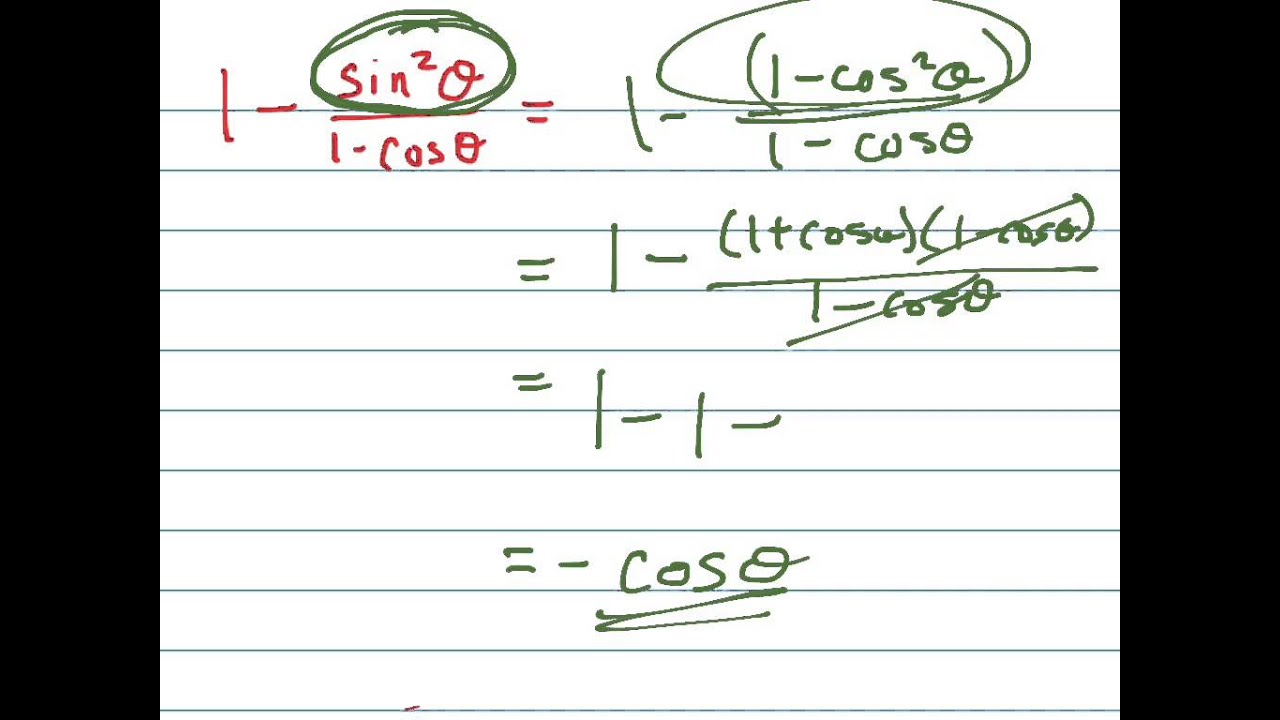 1 - sin²θ / 1-cosθ = 1 - (1-cos²θ) / 1 - cosθ
= 1 - (1+cosθ)(1-cosθ) / 1-cosθ
= 1 - 1 -
= - cosθ